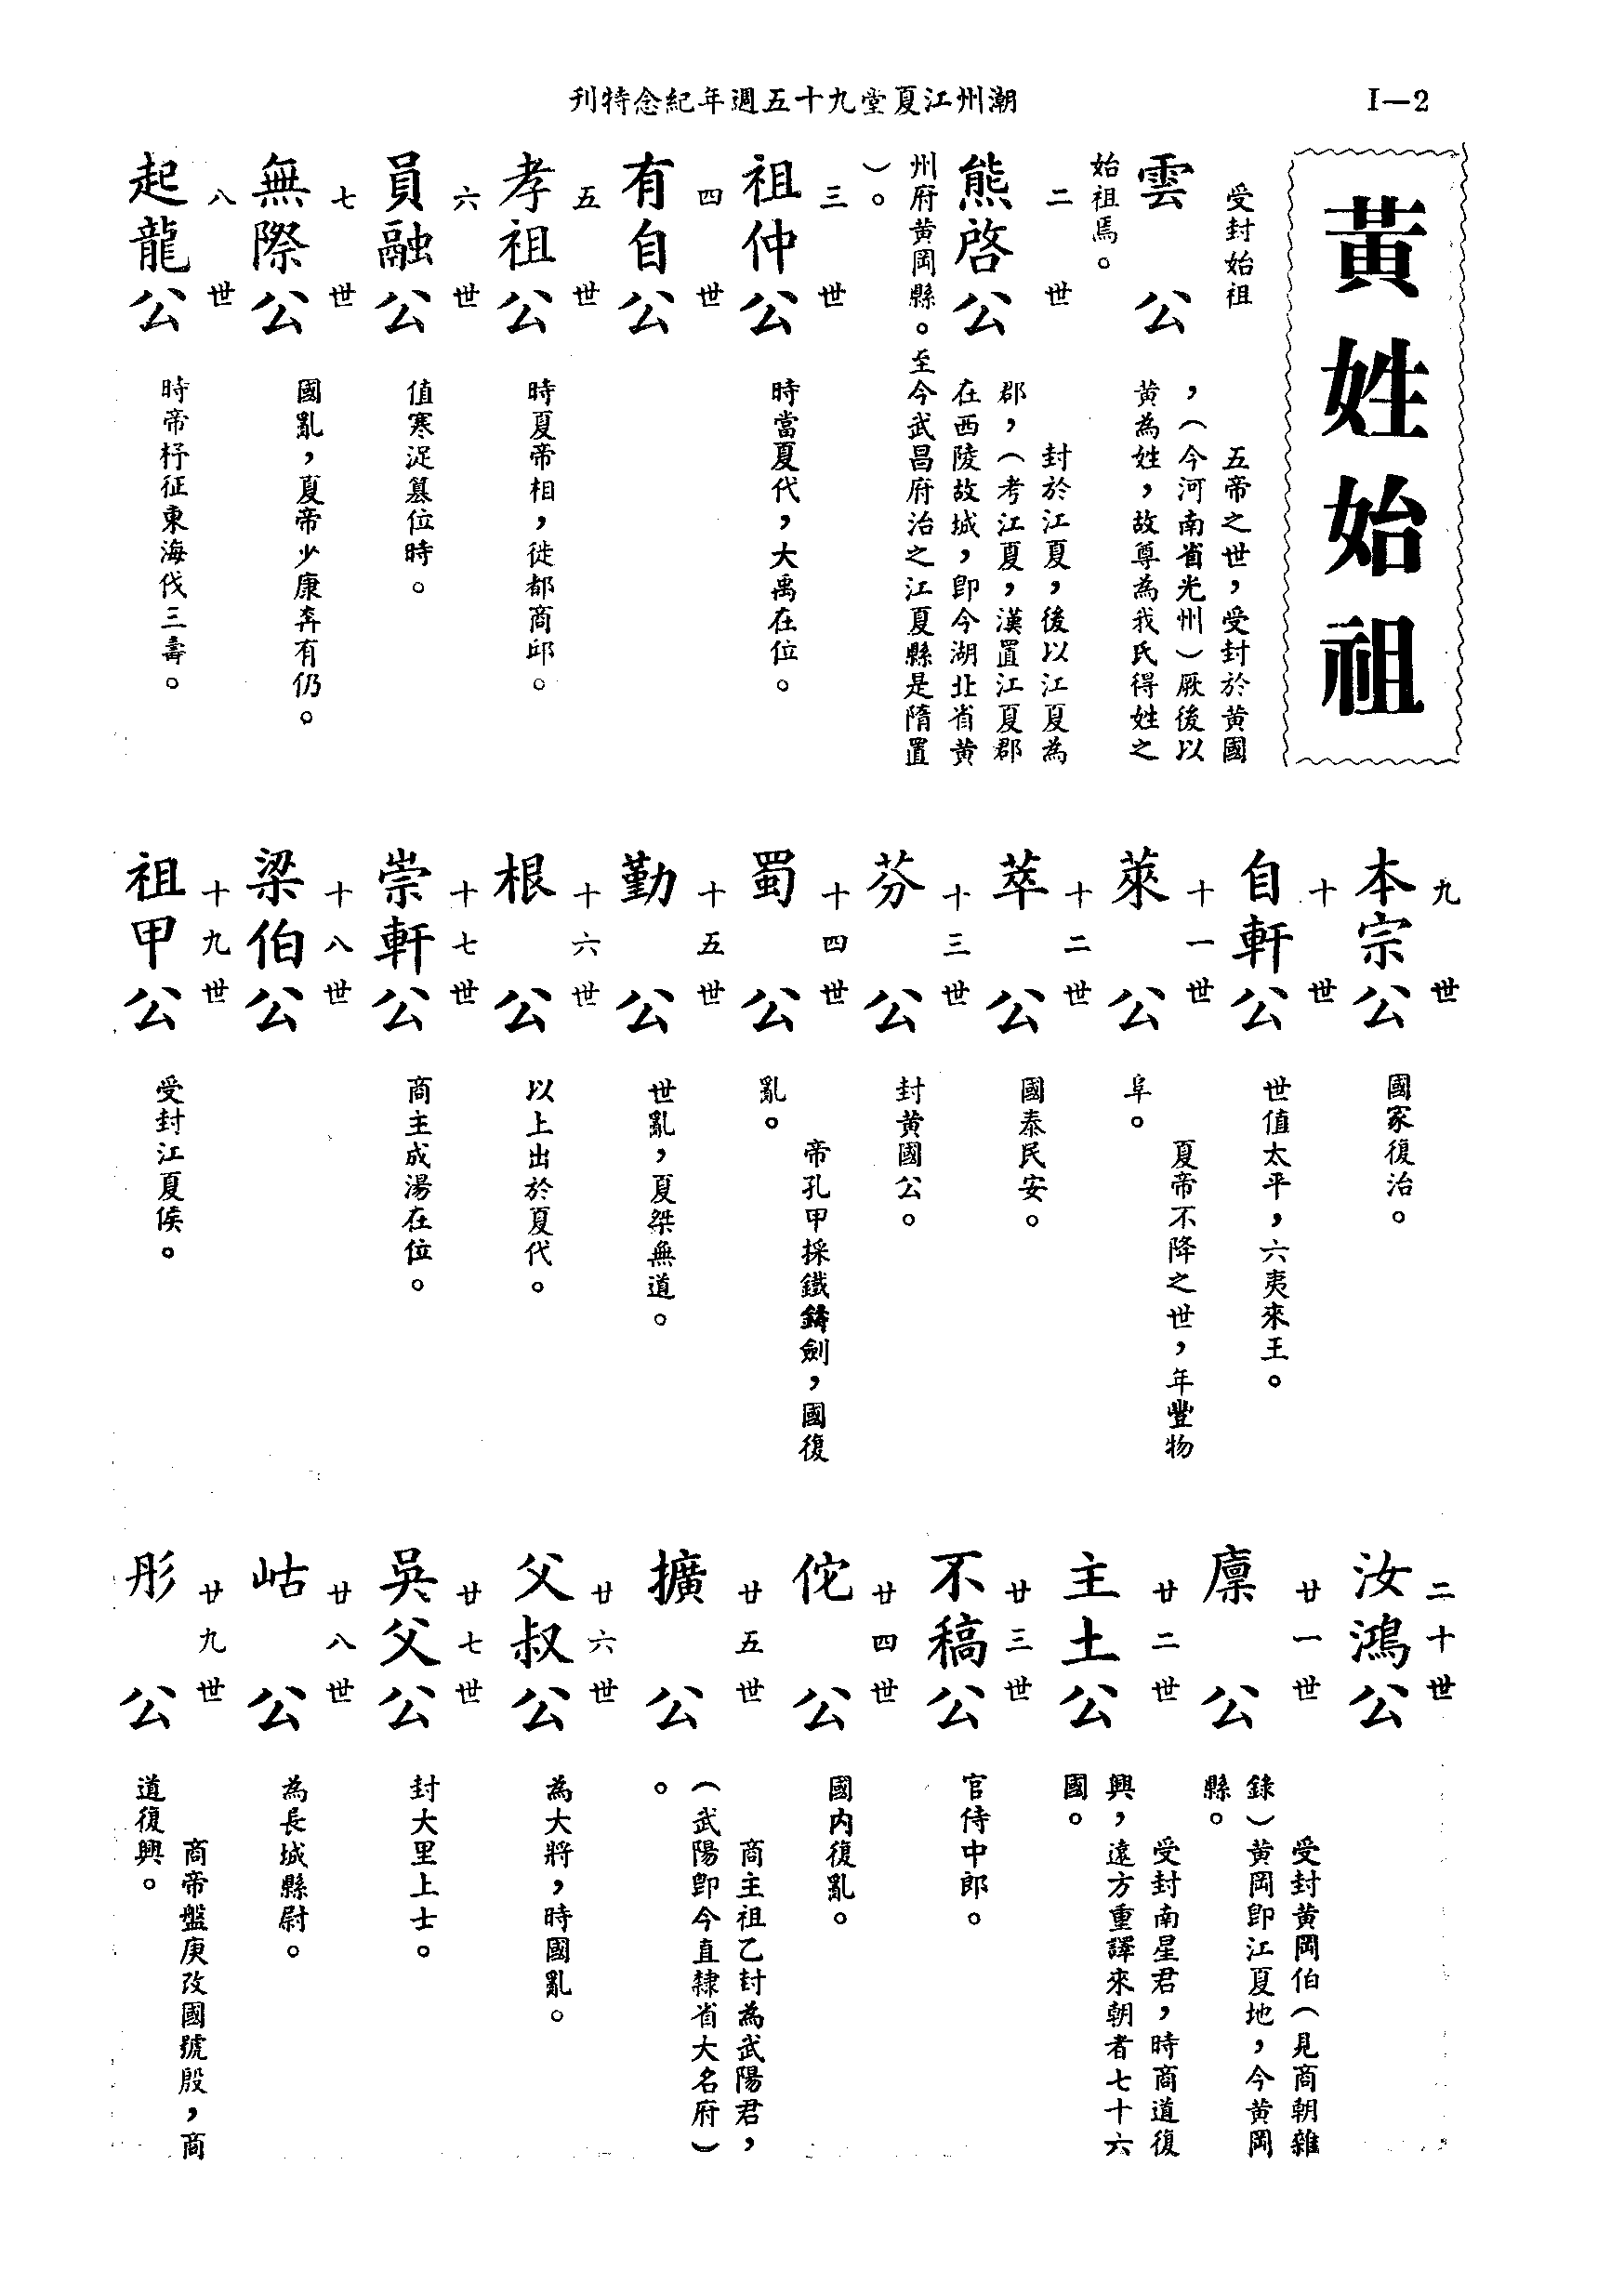 I—2
潮州江夏堂九十五週年紀念特刊
黃姓始祖
受封始祖
雲公
五帝之世，受封於黃國
，（今河南省光州）厥後以
黃為姓，故尊為我氏得姓之
始祖焉。
二世
熊啓公
封於江夏，後以江夏為
郡，（考江夏，漢置江夏郡
在西陵故城，即今湖北省黃
州府黃岡縣。至今武昌府治之江夏縣是隋置
）。
三世
祖仲公
時當夏代，大禹在位。
四世
有自公
五世
孝祖公
時夏帝相，徙都商邱。
六世
員融公
值寒浞篡位時。
七世
無際公
國亂，夏帝少康奔有仍。
八世
起龍公
時帝杼征東海伐三壽。
九世
本宗公
國家復治。
十世
自軒公
世值太平，六夷來王。
十一世
萊公
夏帝不降之世，年豐物
阜。
十二世
萃公
國泰民安。
十三世
芬公
封黃國公。
十四世
蜀公
帝孔甲採鐵鑄劍，國復
亂。
十五世
勤公
世亂，夏桀無道。
十六世
根公
以上出於夏代。
十七世
崇軒公
商主成湯在位。
十八世
梁伯公
十九世
祖甲公
受封江夏侯。
二十世
汝鴻公
廿一世
廩公
受封黃岡伯（見商朝雜
錄）黃岡即江夏地，今黃岡
縣。
廿二世
主土公
受封南星君，時商道復
興，遠方重譯來朝者七十六
國。
廿三世
不稿公
官侍中郎。
廿四世
佗公
國內復亂。
廿五世
擴公
商主祖乙封為武陽君，
（武陽即今直隸省大名府）
。
廿六世
父叔公
為大將，時國亂。
廿七世
吳父公
封大里上士。
廿八世
岵公
為長城縣尉。
廿九世
彤公
商帝盤庚改國號殷，商
道復興。